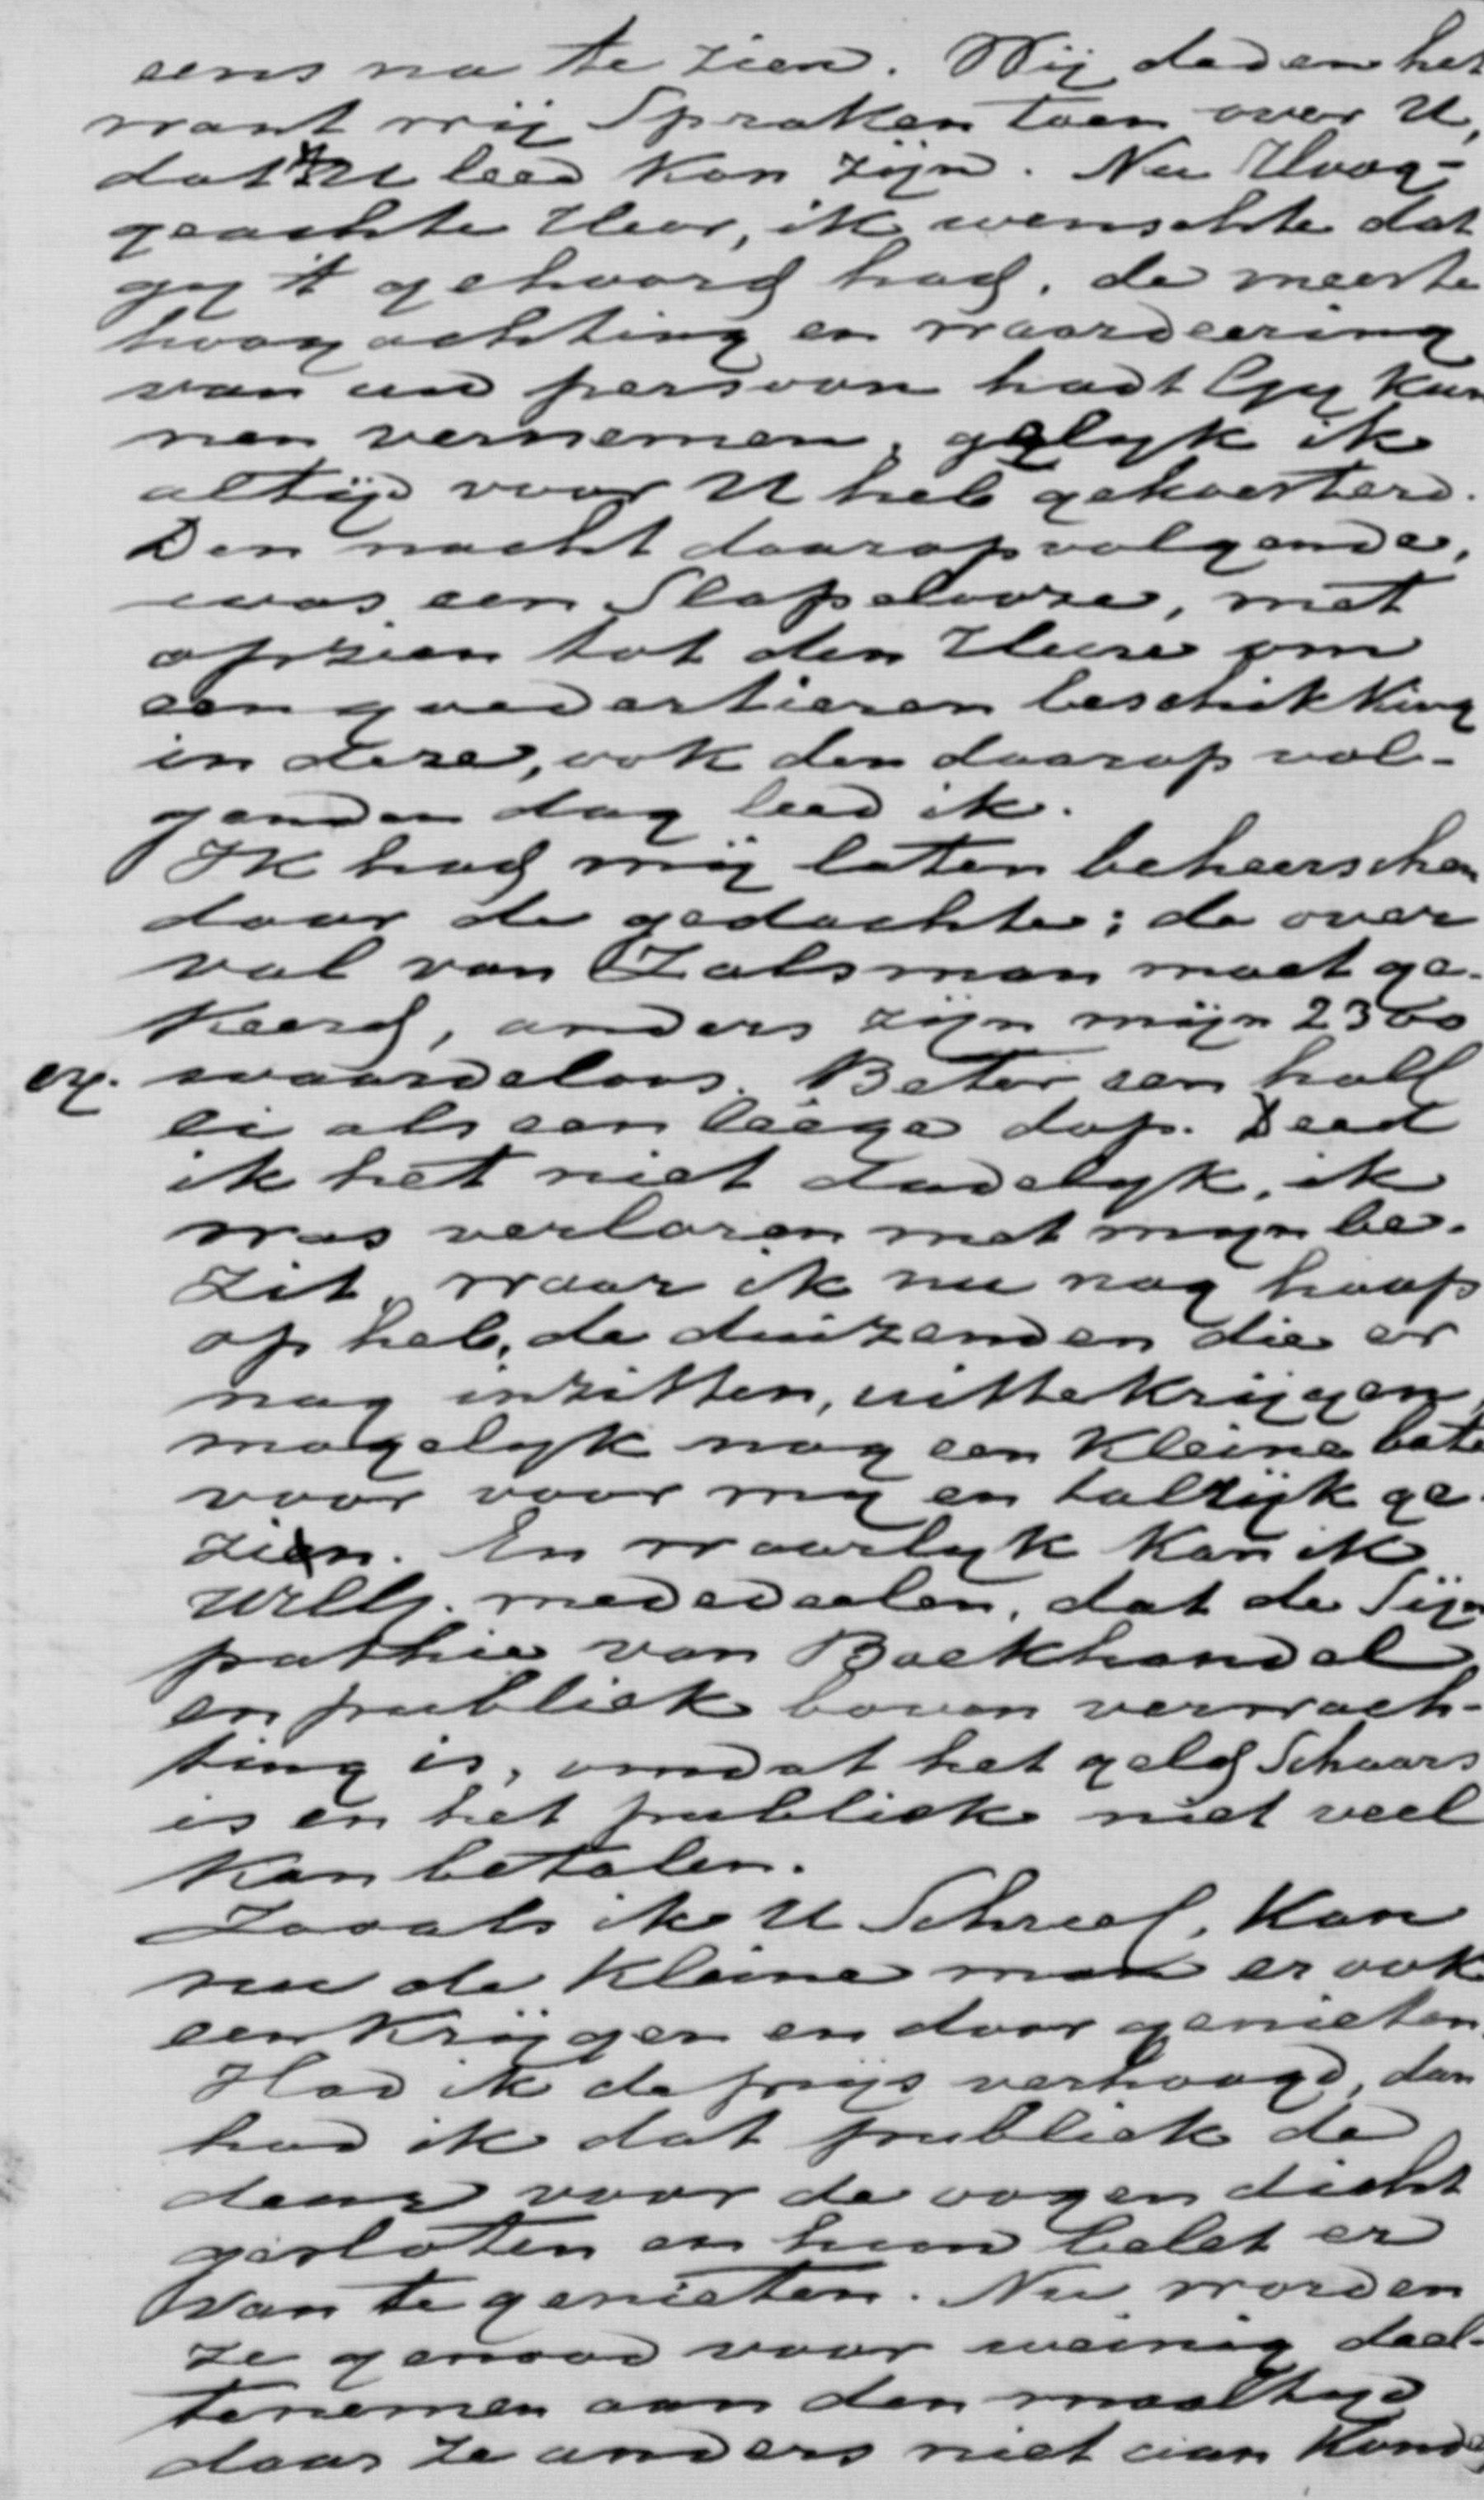 eens na te zien. Wij deden het
want wij Spraken toen over U,
dat 't U leed kon zijn. Nu Hoog-
geachte Heer, ik wenschte dat
gy 't gehoord had, de meeste
hoogachting en waardeering
van uw persoon hadt Gy kun
nen vernemen, gelyk ik
altijd voor U heb gekoesterd.
Den nacht daaropvolgende,
was een Slapelooze, met
opzien tot den Heere om
een goedertieren beschikking
in deze, ook den daarop vol-
genden dag leed ik.
Ik had mij laten beheerschen
door de gedachte; de over
val van Zalsman moet ge-
keerd, anders zijn mijn 2300
ex. waardeloos. Beter een half
ei als een leege dop. Deed
ik het niet dadelyk, ik
was verloren met myn be-
zit, waar ik nu nog hoop
op heb, de duizenden die er
nog inzitten, uittekrijgen,
mogelyk nog een kleine bate
voor voor my en talrijk ge-
zien. En waarlyk kan ik
UWEG. mededeelen, dat de Sijm
pathie van Boekhandel
en publiek boven verwach-
ting is, omdat het geld Schaars
is en het publiek niet veel
kan betalen.
Zooals ik U Schreef, kan
nu de kleine man er ook
een krijgen en door genieten.
Had ik de prijs verhoogd, dan
had ik dat publiek de
deur voor de oogen dicht
gesloten en hun belet er
van te genieten. Nu worden
ze genood voor weinig deel-
tenemen aan den maaltyd
daar ze anders niet aan konde,